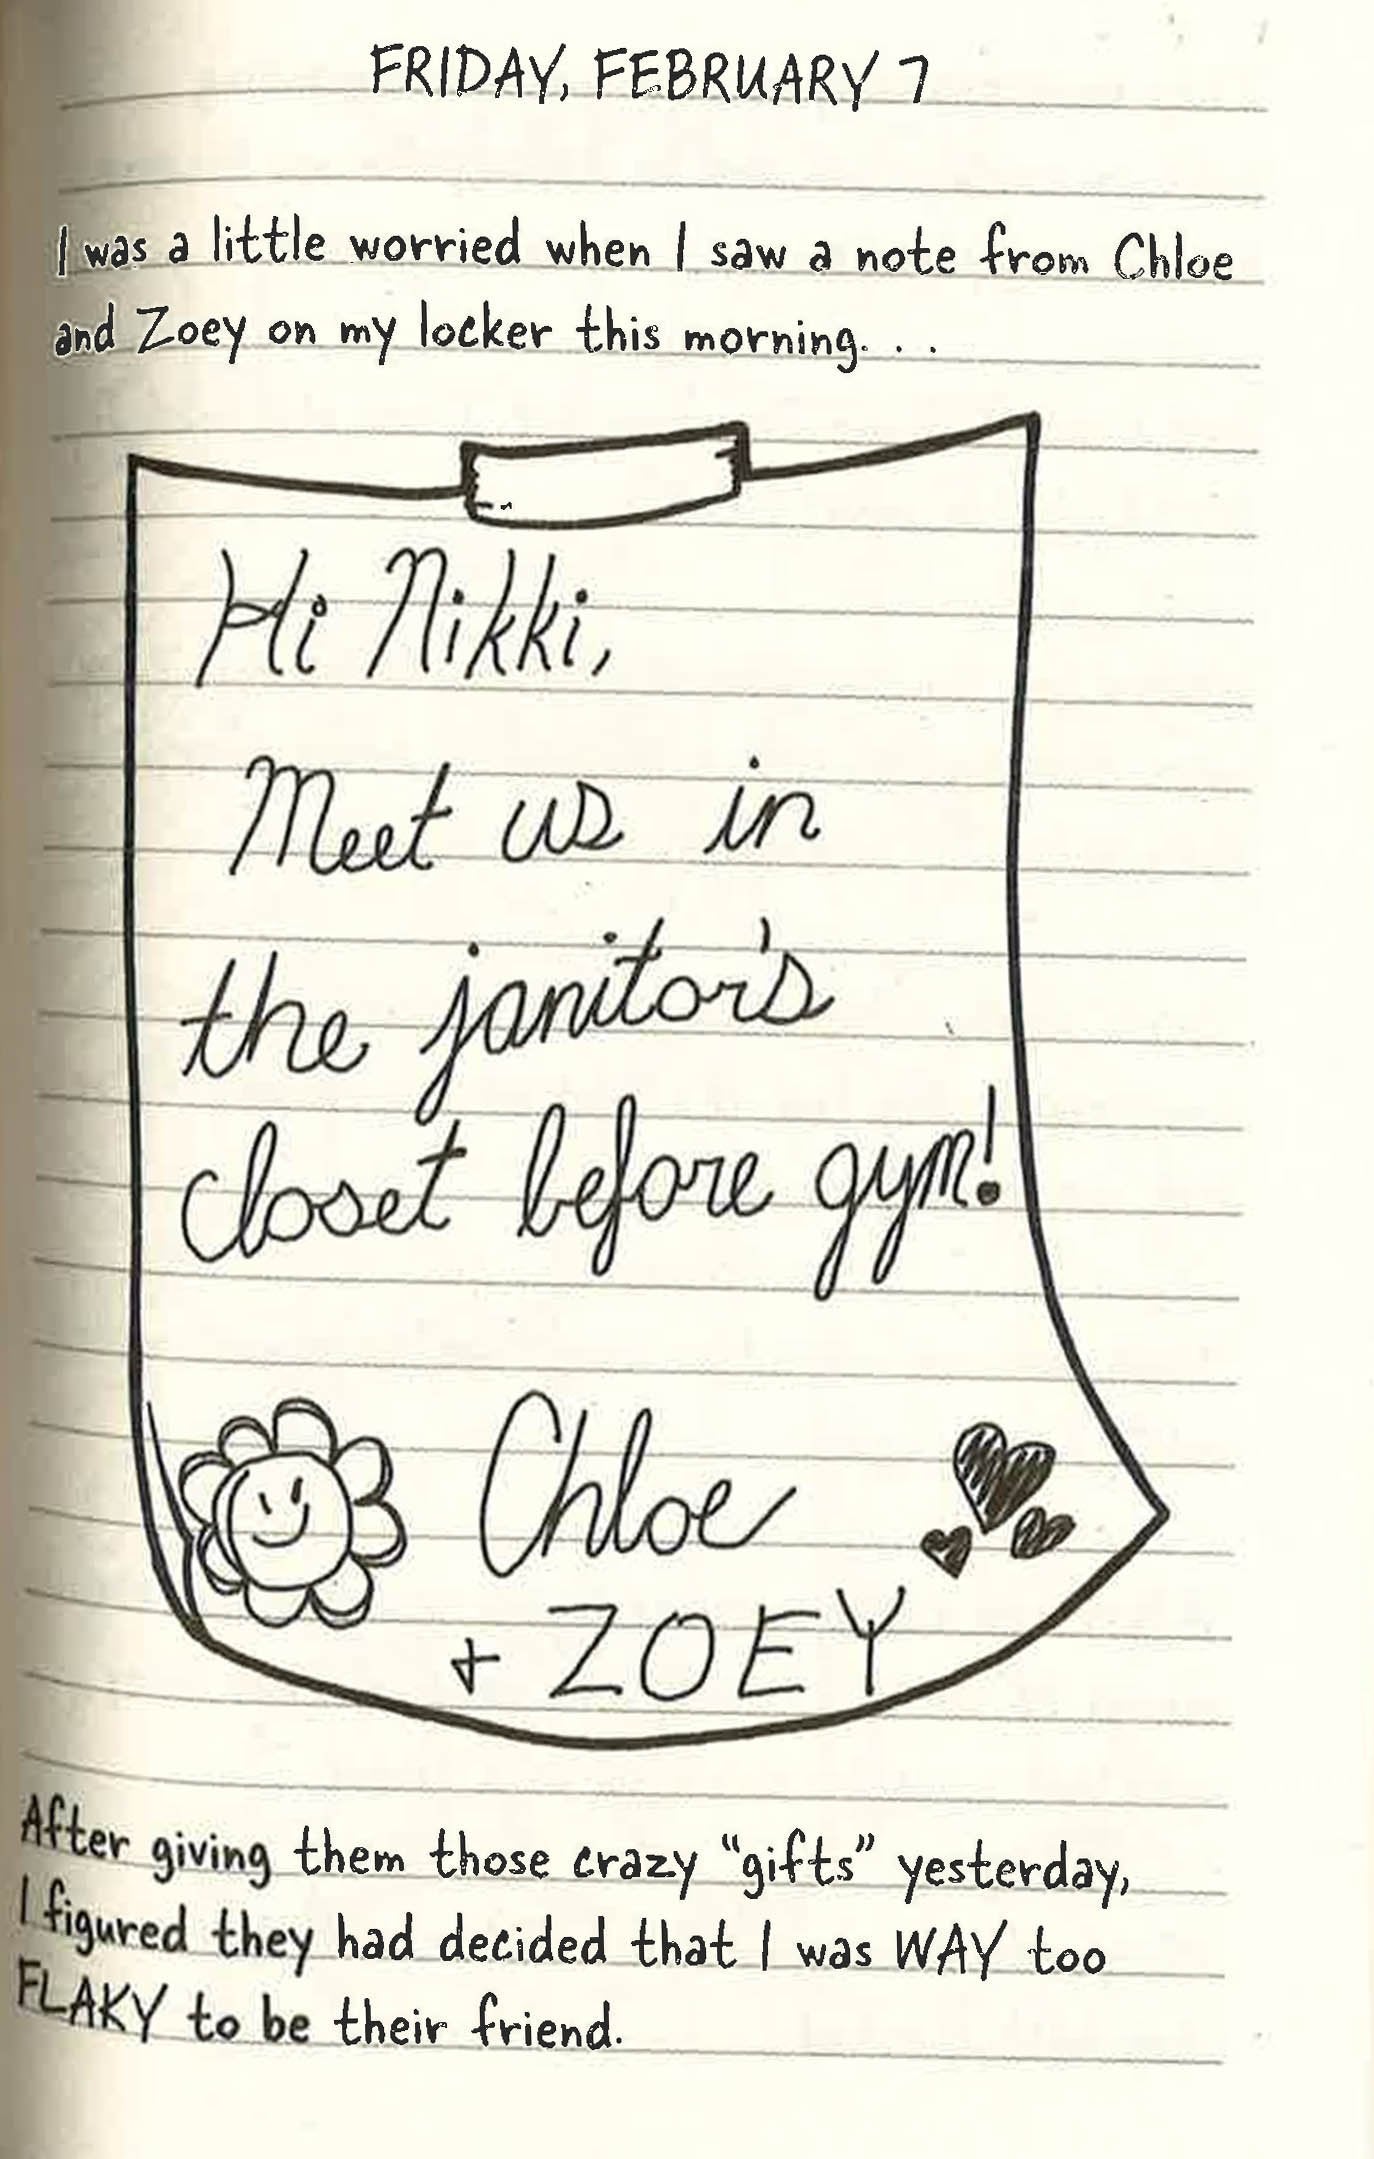 FRIDAY, FEBRUARY 7
I was a little worried when I saw a note from Chloe
and Zoey on my locker this morning. . .
Hi Nikki,
Meet us in
the janitor's
closet before gym!
Chloe
+ ZOEY
After giving them those crazy “gifts” yesterday,
I figured they had decided that I was WAY too
FLAKY to be their friend.